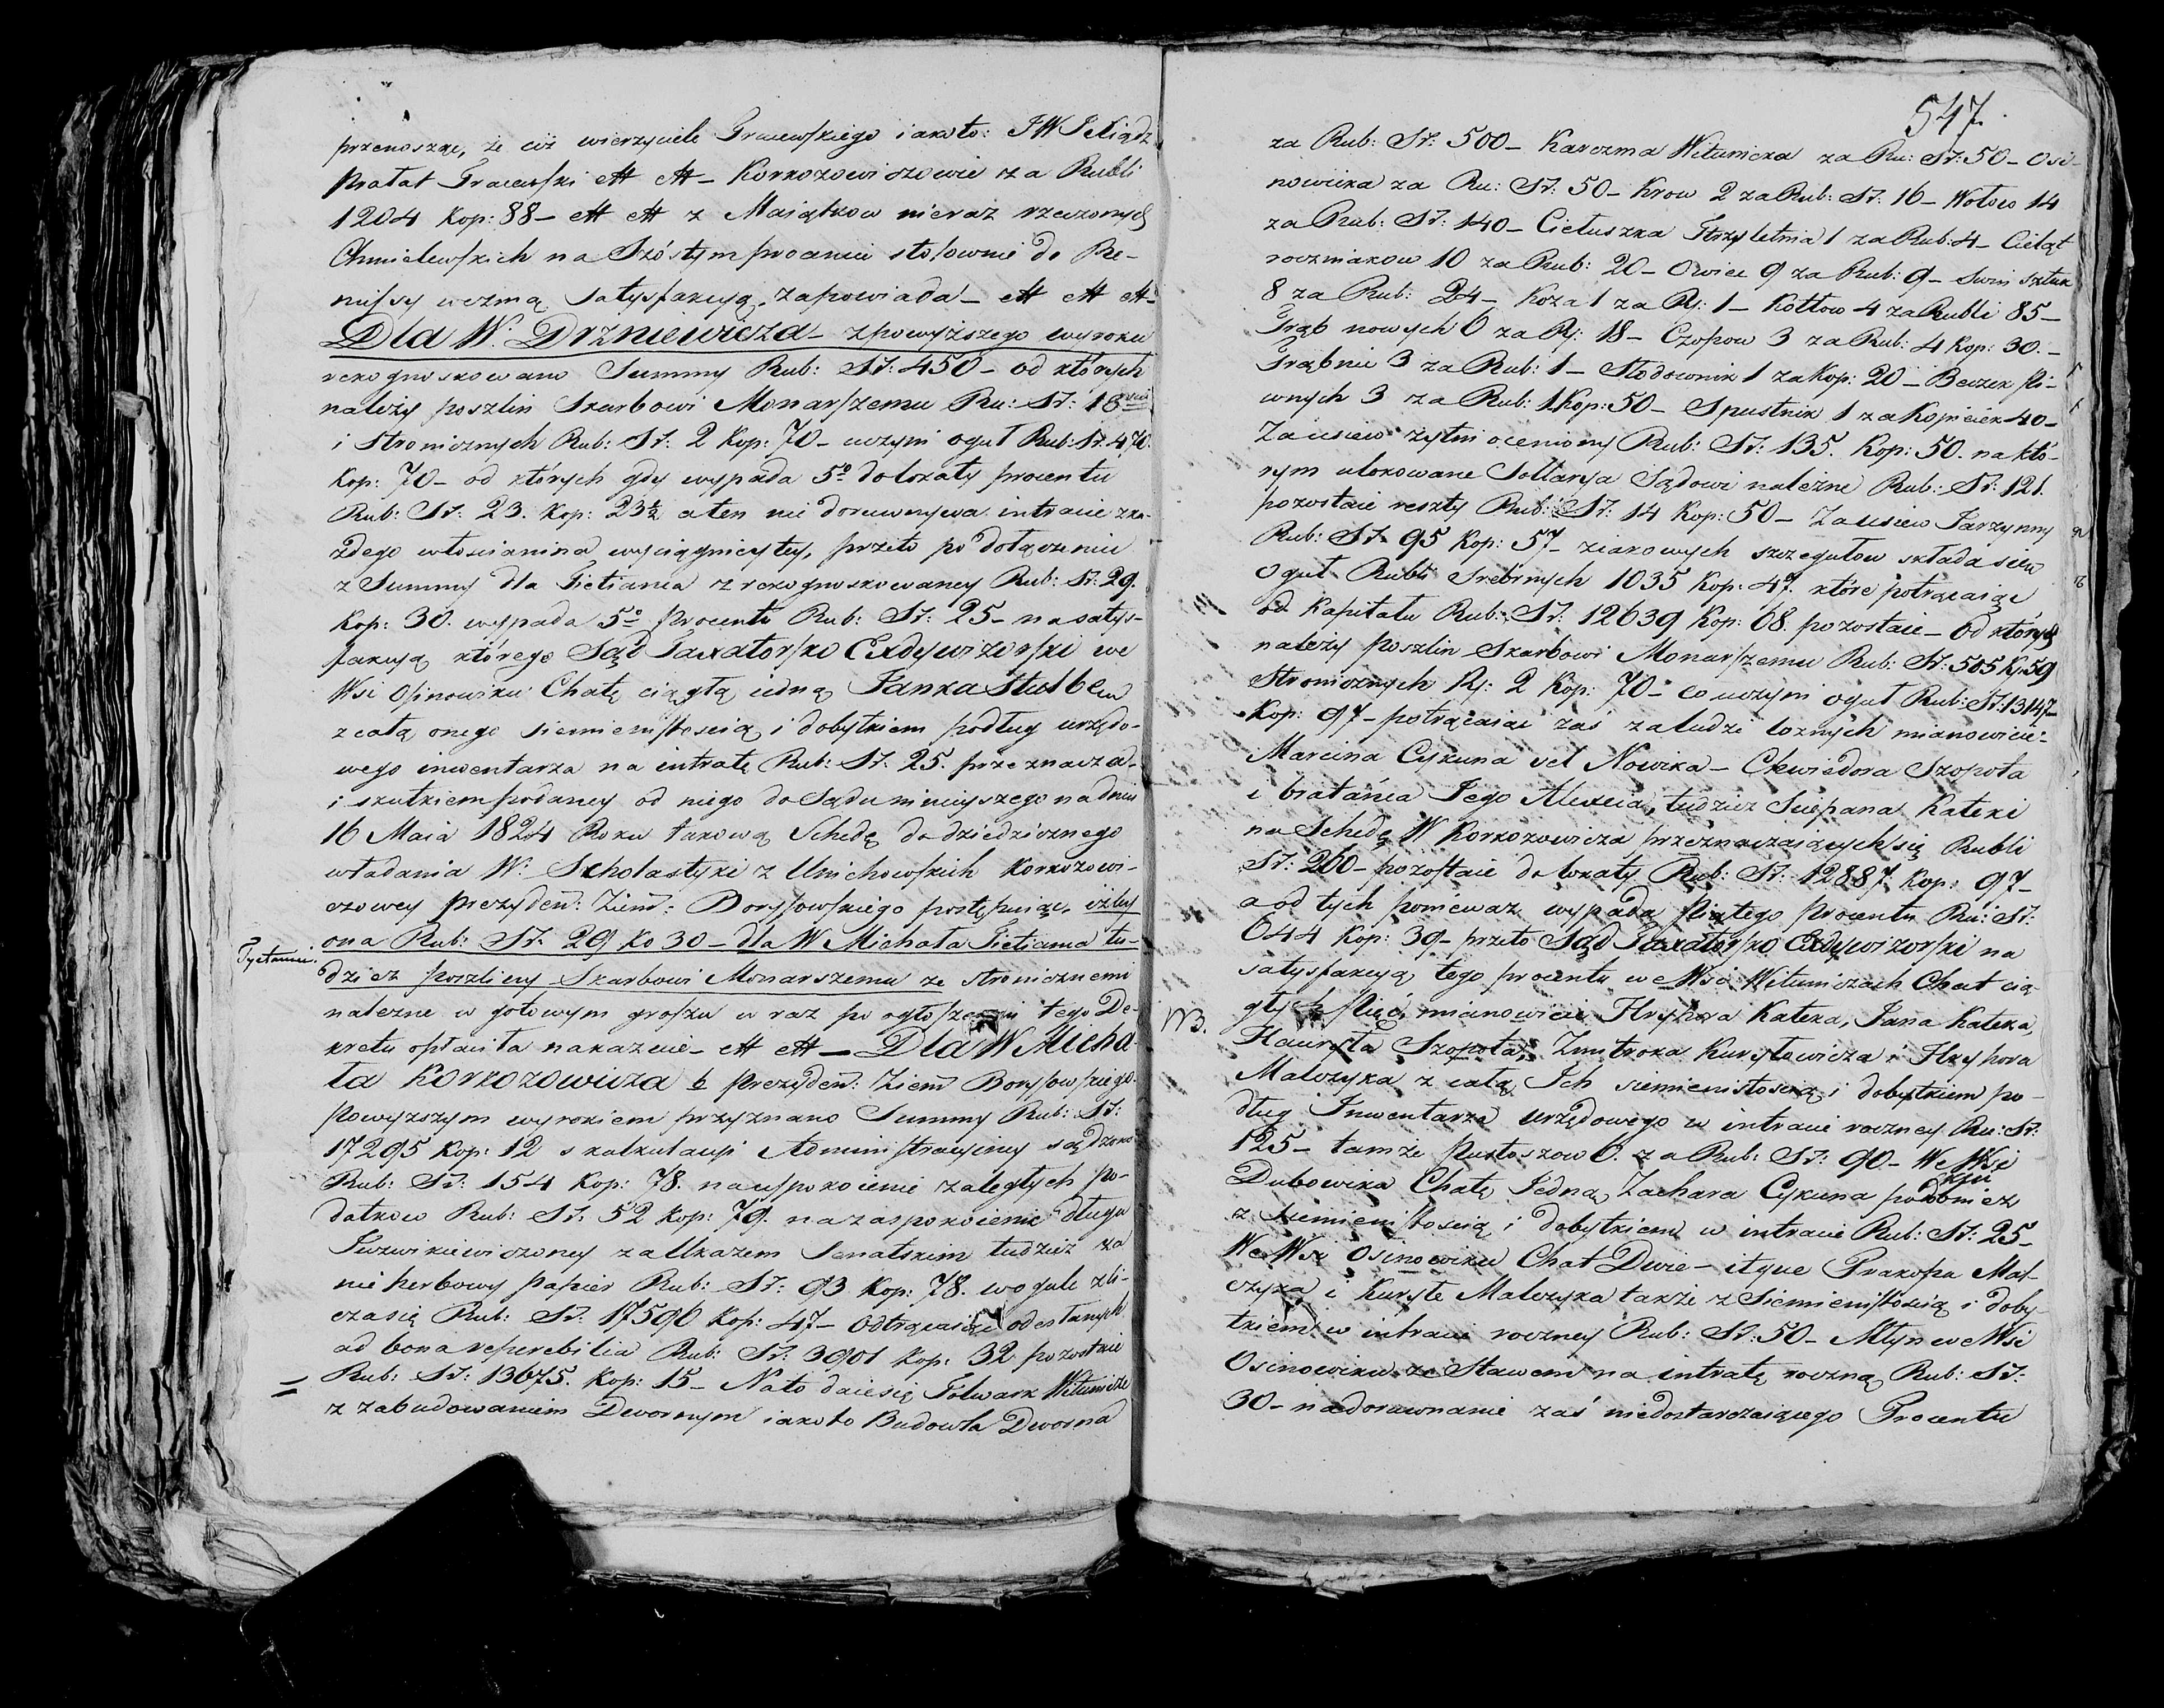 przenosząc, że ciż wierzyciele Graiewskiego iakoto: JWJXiądz
Prałat Graiewski et et – Korkozowiczowie za Rubli
1204 Kop: 88 – et et z Maiątkow nieraz rzeczonych
Chmielewskich na Szóstym procencie stosownie do Re-
missy wezmą satysfakcyą, zapowiada – et et et –
Dla W. Drzniewicza – zpowyższego wyroku
rekognoskowano Summy Rub: Sr: 450 – od których
należy poszlin Skarbowi Monarszemu Ru: Sr: 18
i Stronicznych Rub: Sr: 2 Kop: 70 – uczyni oguł Rub: Sr: 470.
Kop: 70 – od których gdy wypada 5º do lokaty procentu
Rub: Sr: 23. Kop: 23½ a ten nie dorównywa intracie zka-
żdego włościanina wyciągniętey, przeto po dołączeniu
z Summy dla Pietiania zrekognoskowaney Rub: Sr: 29.
Kop: 30. wypada 5º Procentu Rub: Sr: 25 – na satys-
fakcyą którego Sąd Taxatorsko Exdywizorski we
Wsi Osinowiku Chatę ciągłą iedną Janka Stulbę
zcałą onego siemienistością i dobytkiem podług urzędo-
wego inwentarza na intratę Rub: Sr: 25. przeznacza.
i skutkiem podaney od niego do Sądu ninieyszego na dniu
16 Maia 1824 Roku takową Schedę do dziedzicznego
władania W. Scholastyki z Unichowskich Korkozowi-
czowey Prezydeñ: Ziem: Borysowskiego postępuiąc, iżby
ona Rub: Sr: 29 Ko 30 – dla W Michała Pietiania tu-
dzież poszliny Skarbowi Monarszemu ze stronicznemi
należne w gotowym groszu w raz po ogłoszeniu tego De-
kretu opłaciła nakazuie – et et – Dla W Micha-
ła Korkozowicza b Prezydeñ: Ziem Borysowskiego
powyższym wyrokiem przyznano Summy Rub: Sr:
17295 Kop: 12 z kalkulacyi Administracyiney sądzono
Rub: Sr: 154 Kop: 78. na uspokoienie zaległych po-
datkow Rub: Sr: 52 Kop: 79. na zaspokoienie długu
zaUkazem Senatskim tudzież za
nie herbowy papier Rub: Sr: 93 Kop: 78. wogule zli-
cza się Rub: Sr: 17596 Kop: 47 – Odtrącaiąc odesłanych
ad bona reperebilia Rub: Sr: 3901 Kop: 32 pozostaie
Rub: Sr: 13675. Kop: 15 – Nato daie się Folwark Witunicze
z zabudowaniem Dwornym iakoto Budowla Dworna
547.
za Rub: Sr: 500 – Karczma Witunicka za Ru: Sr: 50 – Osi-
nowicka za Ru: Sr: 50 – Krow 2 za Rub: Sr: 16 – Wołow 14
za Rub: Sr: 140 – Cieluszka Trzyletnia 1 za Rub: 4 – Cieląt
roczniakow 10 za Rub: 20 – Owiec 9 za Rub: 9 – Swini sztuk
8 za Rub: 24 – Koza 1 za R: 1 – Kotłow 4 za Rubli 85 –
Trąb nowych 6 za R: 18 – Czopow 3 za Rub: 4 Kop: 30. –
Trąbnic 3 za Rub: 1 – Słodownik 1 za Kop: 20 – Beczek pi-
wnych 3 za Rub: 1 Kop: 50 – Spustnik 1 za Kopieiek 40 –
Zasiew żytni oceniony Rub: Sr: 135. Kop: 50. na któ-
rym ulokowane Sollarya Sądowi należne Rub: Sr: 121.
pozostaie reszty Rub: Sr: 14 Kop: 50 – Zasiew Jarzynny
Rub: Sr 95 Kop: 57 – ziakowych szczegułow składa się
oguł Rubli Srebrnych 1035 Kop: 47. które potrącaiąc
od Kapitału Rub: Sr: 12639 Kop: 68. pozostaie – Od których
należy Poszlin Skarbowi Monarszemu Rub: Sr: 505 K: 59
Stronicznych R: 2 Kop: 70 – co uczyni oguł Rub: Sr: 13147 –
Kop: 97 – potrącaiąc zaś za ludzi łoznych mianowicie:
Marcina Cykuna vel Nowika – Chwiedora Szopota
i bratańca Jego Alexeia, tudzież Sciepana Kateki
na Schedę W Korkozowicza przeznaczaiących się Rubli
Sr: 260 – pozostaie do lokaty Rub: Sr: 12887 Kop: 97 –
a od tych ponieważ wypada piątego Procentu Ru: Sr:
644 Kop: 39 – przeto Sąd Taxatorsko Exdywizorski na
satysfakcyą tego procentu we Wsi Wituniczach Chat cią-
głych pięć, mianowicie Hryhora Kateka, Jana Kateka,
Hauryła Szopota, Zmitroka Kuryłowicza i Hryhora
Malczyka z całą Ich siemienistością i dobytkiem po-
dług Inwentarza urzędowego w intracie roczney Ru: Sr:
125 – tamże Pustoszow 6. za Rub: Sr: 90 – We Wsi
Dubowika Chatę Jedną Zachara Cykuna podobnież
z siemienistością i dobytkiem w intracie Rub: Sr: 25 –
We Wsi Osinowiku Chat Dwie – itque Prakopa Mal-
czyka i Kuryłę Malczyka także z Siemienistością i doby-
tkiem w intracie roczney Rub: Sr: 50 – Młyn we Wsi
Osinowiku ze Stawem na intratę roczną Rub: Sr:
30 – na dorównanie zaś niedostarczaiącego Procentu
NB.